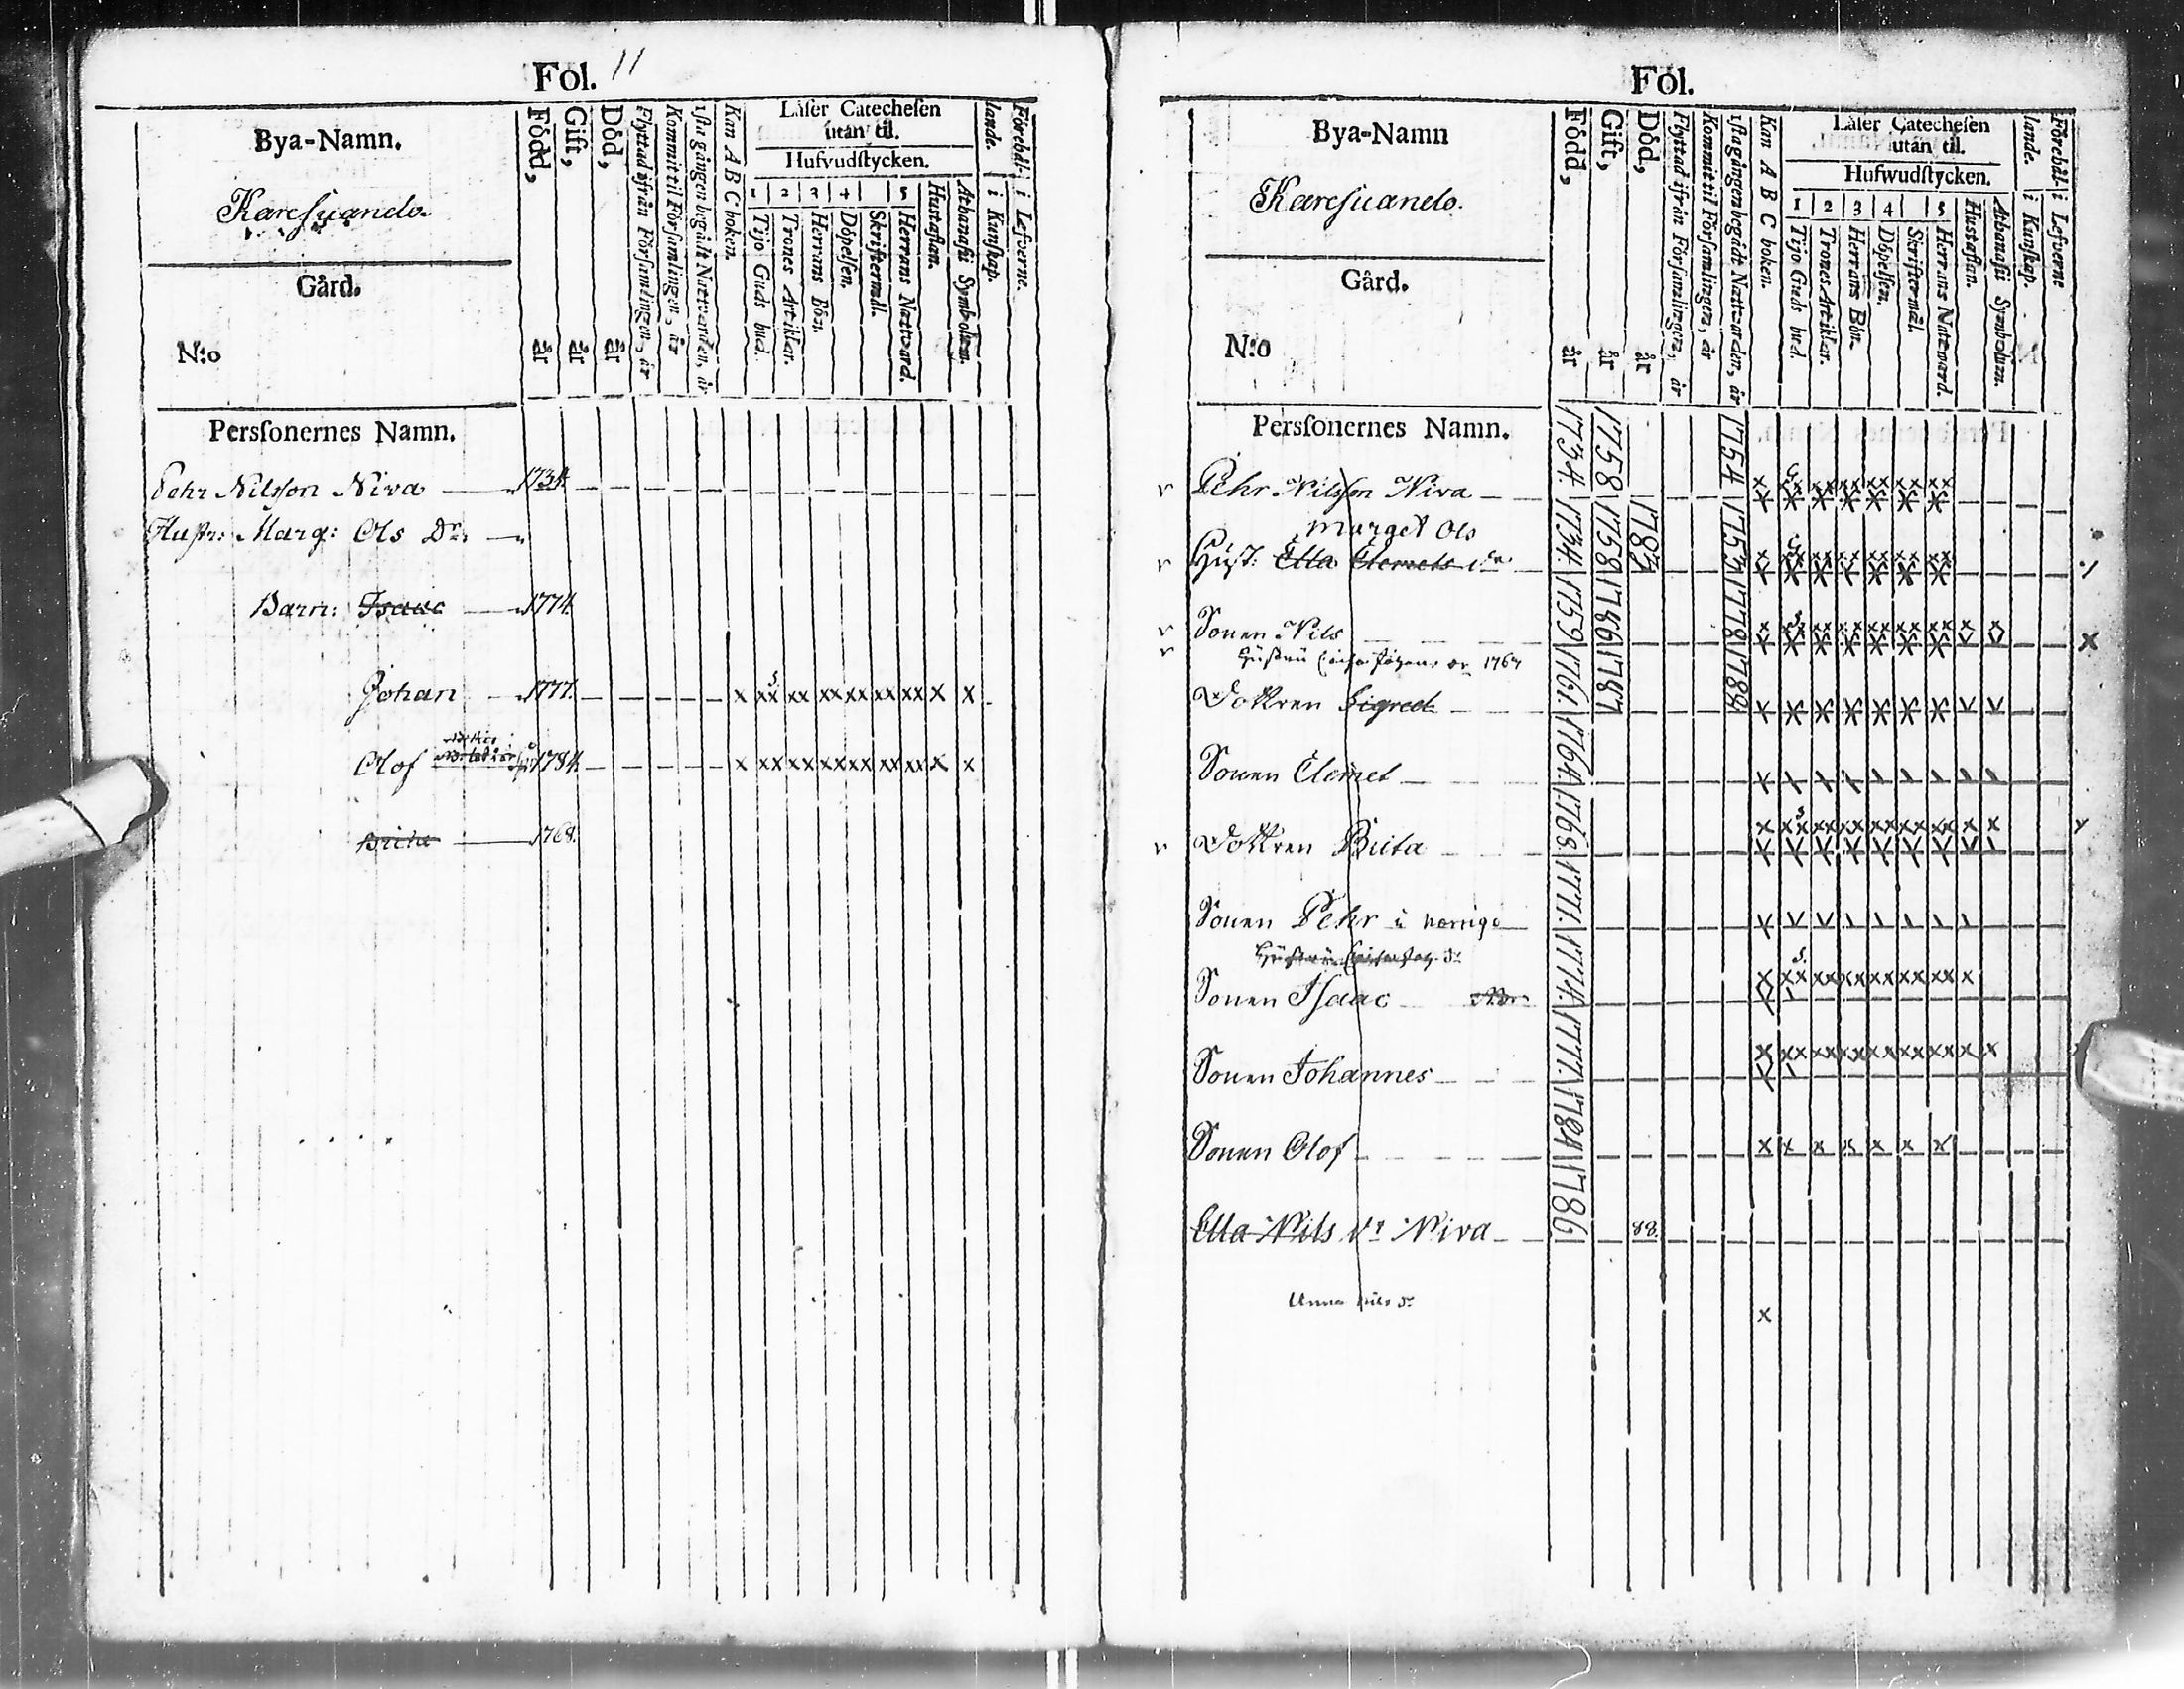 Fol. 11
Bya-Namn.
Karesuando.
Gård.
N:o
Född, år
Gift, år
Död, år
Flyttad ifrån Församlingen, år
Kommit til Församlingen, år
1sta gången begådt Nattvarden, år
Kan A B C boken.
Läser Catechesen
utan til.
Hufvudstycken.
1 2 3 4 5
Tijo Guds bud.
Trones Artiklar.
Herrans Bön.
Döpelsen.
Skriftermål.
Herrans Nattvard.
Hustaflan.
Athanasii Symbolum.
Förehål-
lande.
i Kunskap.
i Lefverne.
Perssonernes Namn.
Pehr Nilsson Niva 1734.
Hustr: Marg: Ols Dr.
Barn: Isaac 1774.
Johan 1777. x xx xx xx xx xx xx x x
Olof 1784. x xx xx xx xx xx xx x x
Brita 1768.
Fol.
Bya-Namn
Karesuando.
Gård.
N:o
Född, år
Gift, år
Död, år
Flyttad ifrån Församlingen, år
Kommit til Församlingen, år
1sta gången begådt Nattvarden, år
Kan A B C boken.
Läser Catechesen
utan til.
Hufwudstycken.
1 2 3 4 5
Tijo Guds bud.
Trones Artiklar.
Herrans Bön.
Döpelsen.
Skriftermål.
Herrans Nattvard.
Hustaflan.
Athanasii Symbolum.
Förehål-
lande.
i Kunskap.
i Lefverne
Perssonernes Namn.
Pehr Nilsson Niva 1734. 1758 1754
Marget Ols
Hust. Ella Clemets dr 1734. 1758 1783 1753
Sonen Nils 1759 1786 1778
1767
Dottren Sigred 1761. 1787 1784
Sonen Clemet 1764.
Dottren Brita 1768
Sonen Pehr i norrige 1771.
Sonen Isaac 1774.
Sonen Johannes 1777.
Sonen Olof 1784
Ella Nils dr Niva 1786 88.
Anna Nils dr x